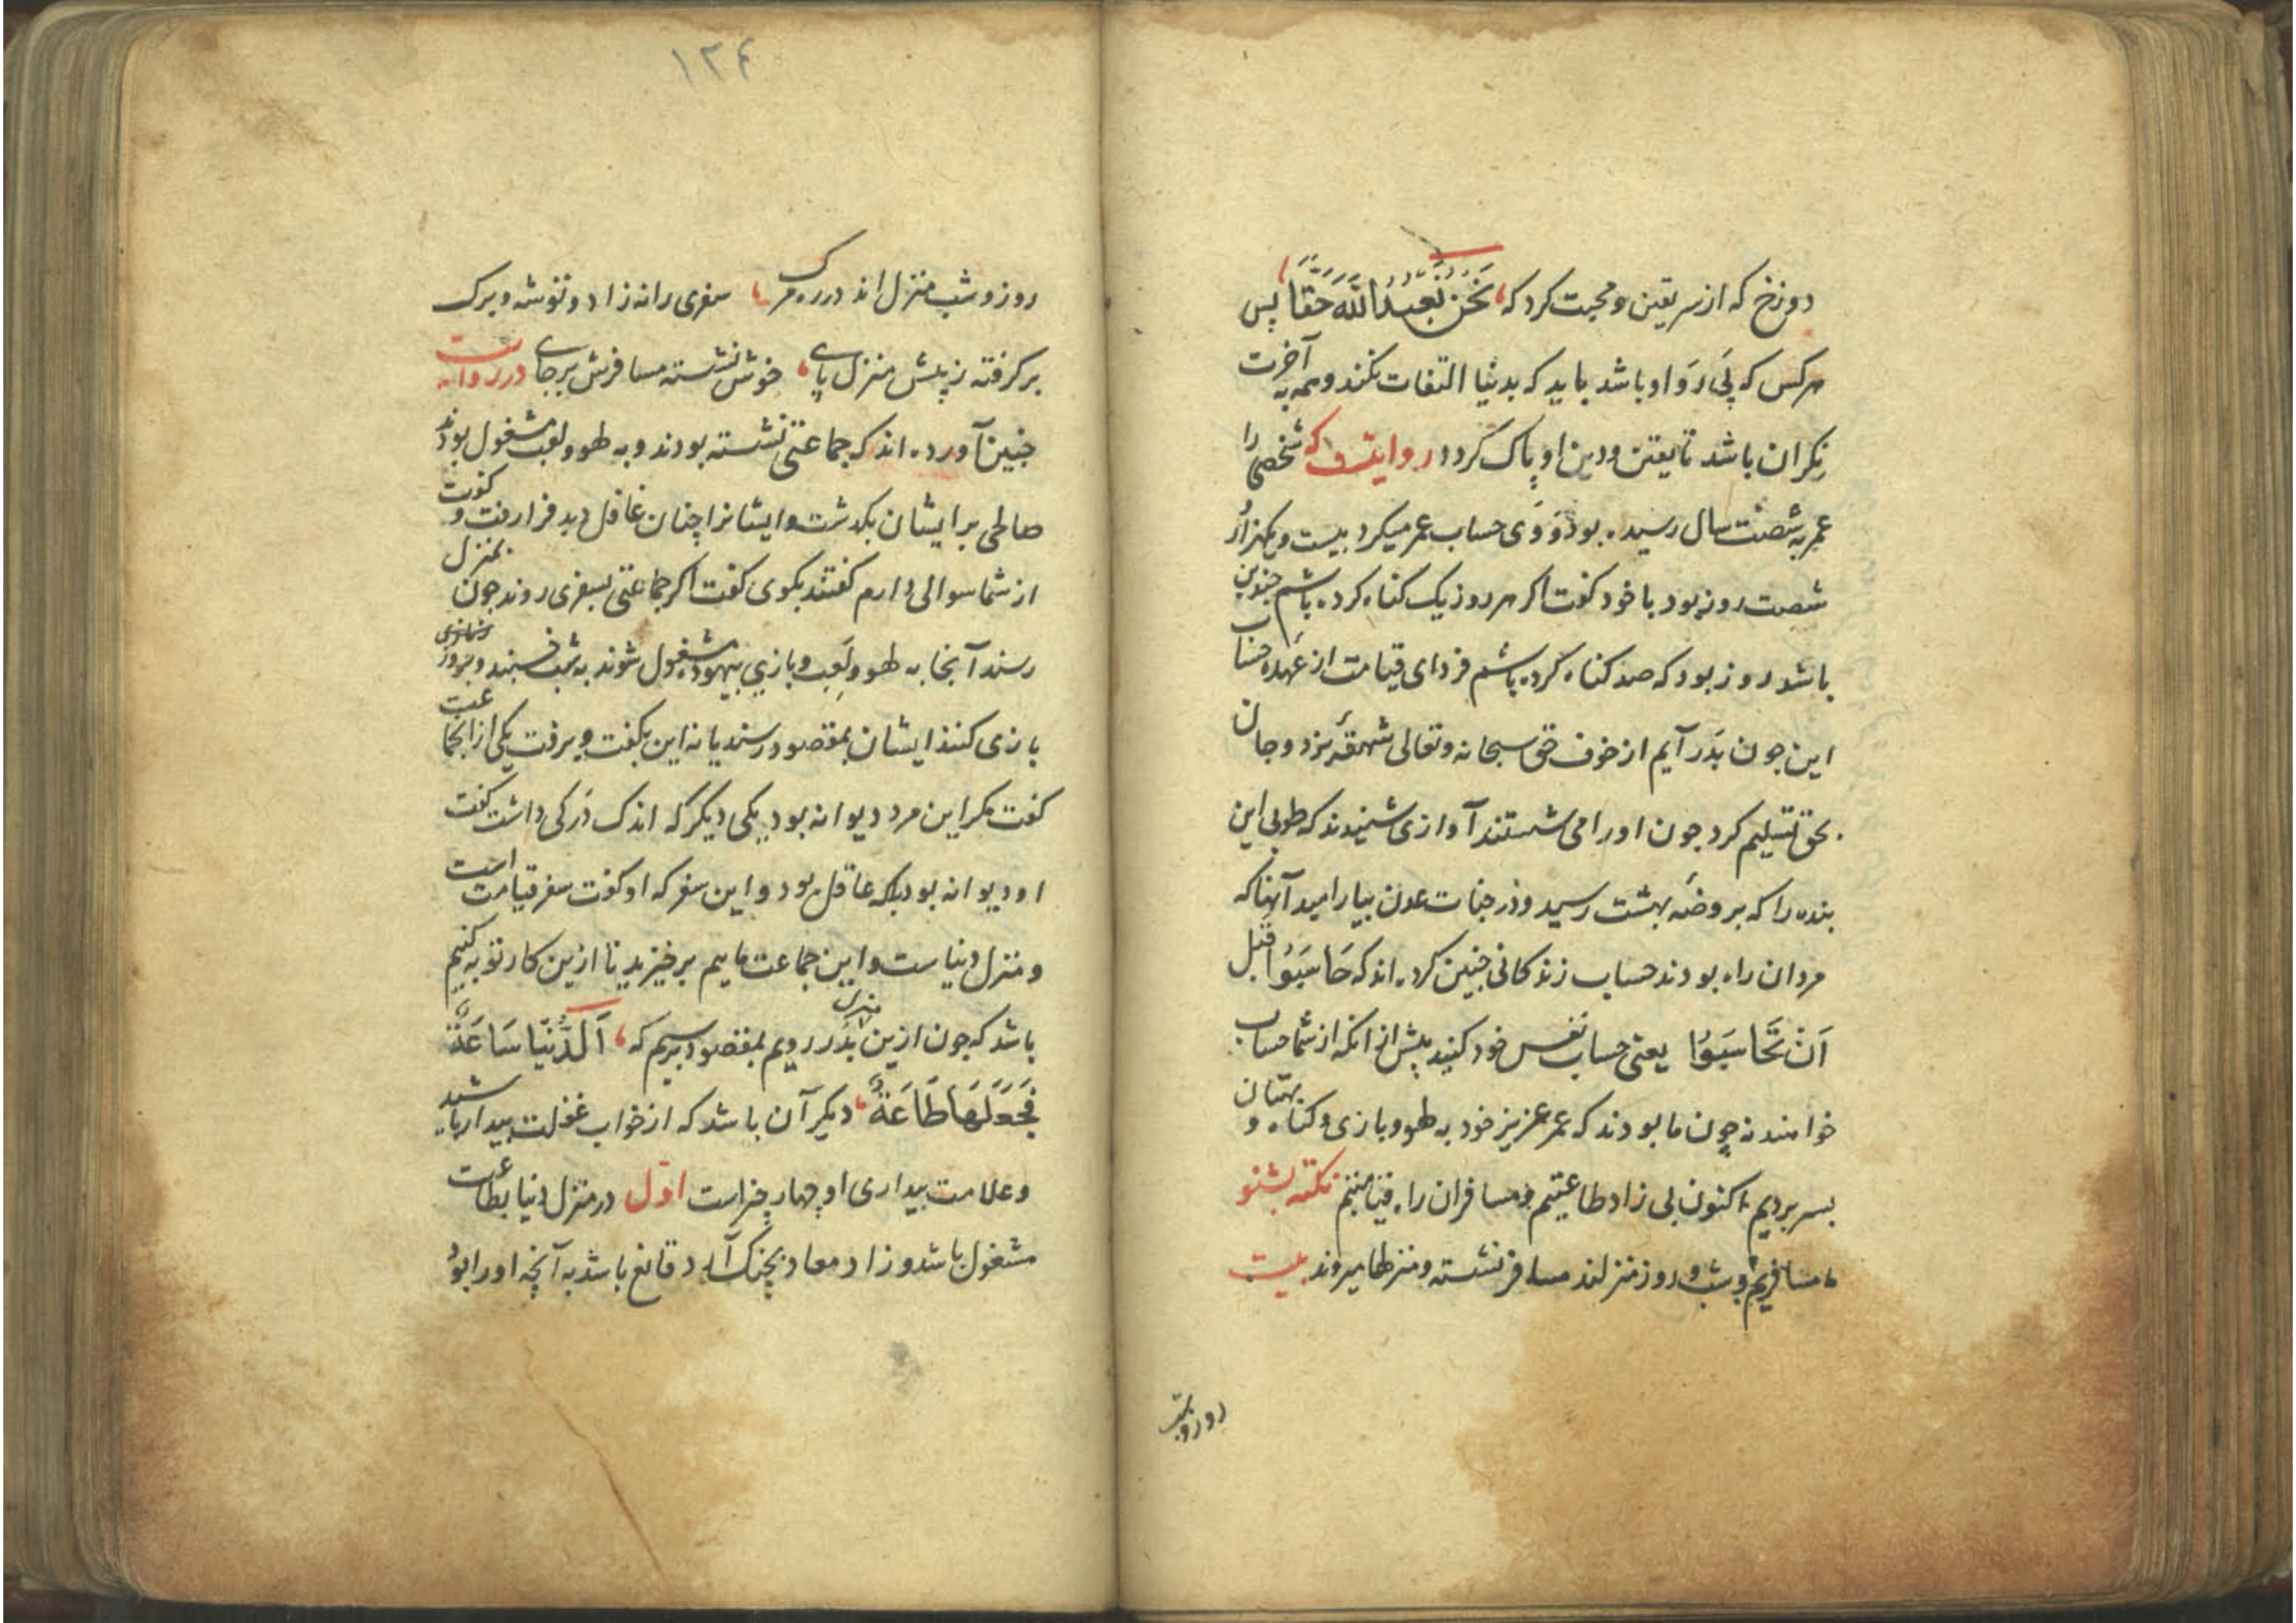 دوزخ که از سر یقین و محبت کرد که نَحْنُ نَعْبُدُ اللّٰهَ حَقًّا پس
هرکس که پَی رَوَ او باشد باید که بدنیا التفات نکند و همه به آخرت
نِکران باشد تا یقین و دین او پاک کردد روایتست که شخصی را
عمر به شصت سال رسیده بود وَ وَی حساب عمر میکرد بیست و یکهزار
شصت روز بود با خود کفت اکر هر روز یک کناه کرده باشم چندین
باشد روز بود که صد کناه کرده باشم فردای قیامت از عُهده حساب
این جون بَدَر آیم از خوف حق سبحانه و تعالی شهقهٔ بزد و جان
بحق تسلیم کرد جون او را می شستند آوازی شنیدند که طوبی این
بنده را که بروضهٔ بهشت رسید و در جنات عدن بیارامید آنها که
مردان راه بودند حساب زندکانی جنین کرده اند که حَاسَبُوا قبل
اَنْ تَحَاسَبُوْا یعنی حساب نفس خود کنید پیش از انکه از شما حساب
خواهند نه چون ما بودند که عمر عزیز خود به لهو و بازی و کناه و بهتان
بسر بردیم اکنون بی زاد طاعتیم و مسافران راه قیامتیم نکته بشنو
مسافریم و شب و روز منزلند مسافر نشسته و منزلها میروند بیت
روز و شب
۱۳۴
روز و شب منزل اند در ره مرک سفری را نه زاد و توشه و برک
برکرفته ز پیش منزل پای خوش نشسته مسافرش برجای در روایت
جنین آورده اند که جماعتی نشسته بودند و به لهو و لعب مشغول بودند
صالحی بر ایشان بکذشت و ایشانرا چنان غافل دید فرا رفت و کفت
از شما سوالی دارم کفتند بکوی کفت اکر جماعتی بسفری روند جون بمنزل
رسند آنجا به لهو و لَعِب و بازی بیهوده مشغول شوند به شب خسبند و بروز
بازی کنند ایشان بمقصود رسند یا نه این بکفت و برفت یکی از انجماعت
کفت مکر این مرد دیوانه بود یکی دیکر که اندک دَرکی داشت کفت
او دیوانه نبود بلکه عاقل بود و این سفر که او کفت سفر قیامت است
و منزل دنیاست و این جماعت ماییم برخیزید تا ازین کار توبه کنیم
باشد که جون ازین منزل بدر رویم بمقصود برسیم که اَلدُّنْیَا سَاعَةٌ
فَجَعَلَهَا طَاعَةٌ دیکر آن باشد که از خواب غفلت بیدار باشید
و علامت بیداری او چهار چیز است اوّل در منزل دنیا بطاعت
مشغول باشد و زاد معاد بچنک آرد و قانع باشد به آنچه او را بود